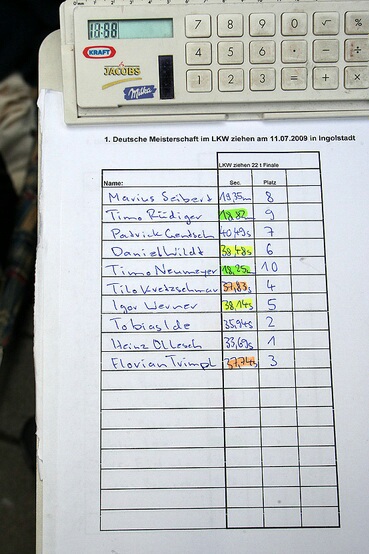 13:58
7 8 9 0 √ %
4 5 6 - ÷
1 2 3 = + ×
KRAFT
JACOBS
Milka
1. Deutsche Meisterschaft im LKW ziehen am 11.07.2009 in Ingolstadt
LKW ziehen 22 t Finale
Name: Sec. Platz
Marius Seibert 19,35m 8
Timo Rüdiger 18,82m 9
Patrick Gentsch 40,49s 7
Daniel Wildt 38,48s 6
Timo Neumeyer 18,25m 10
Tilo Kretzschmar 37,83s 4
Igor Werner 38,14s 5
Tobias Ide 35,94s 2
Heinz Ollesch 33,69s 1
Florian Trimpl 37,74s 3